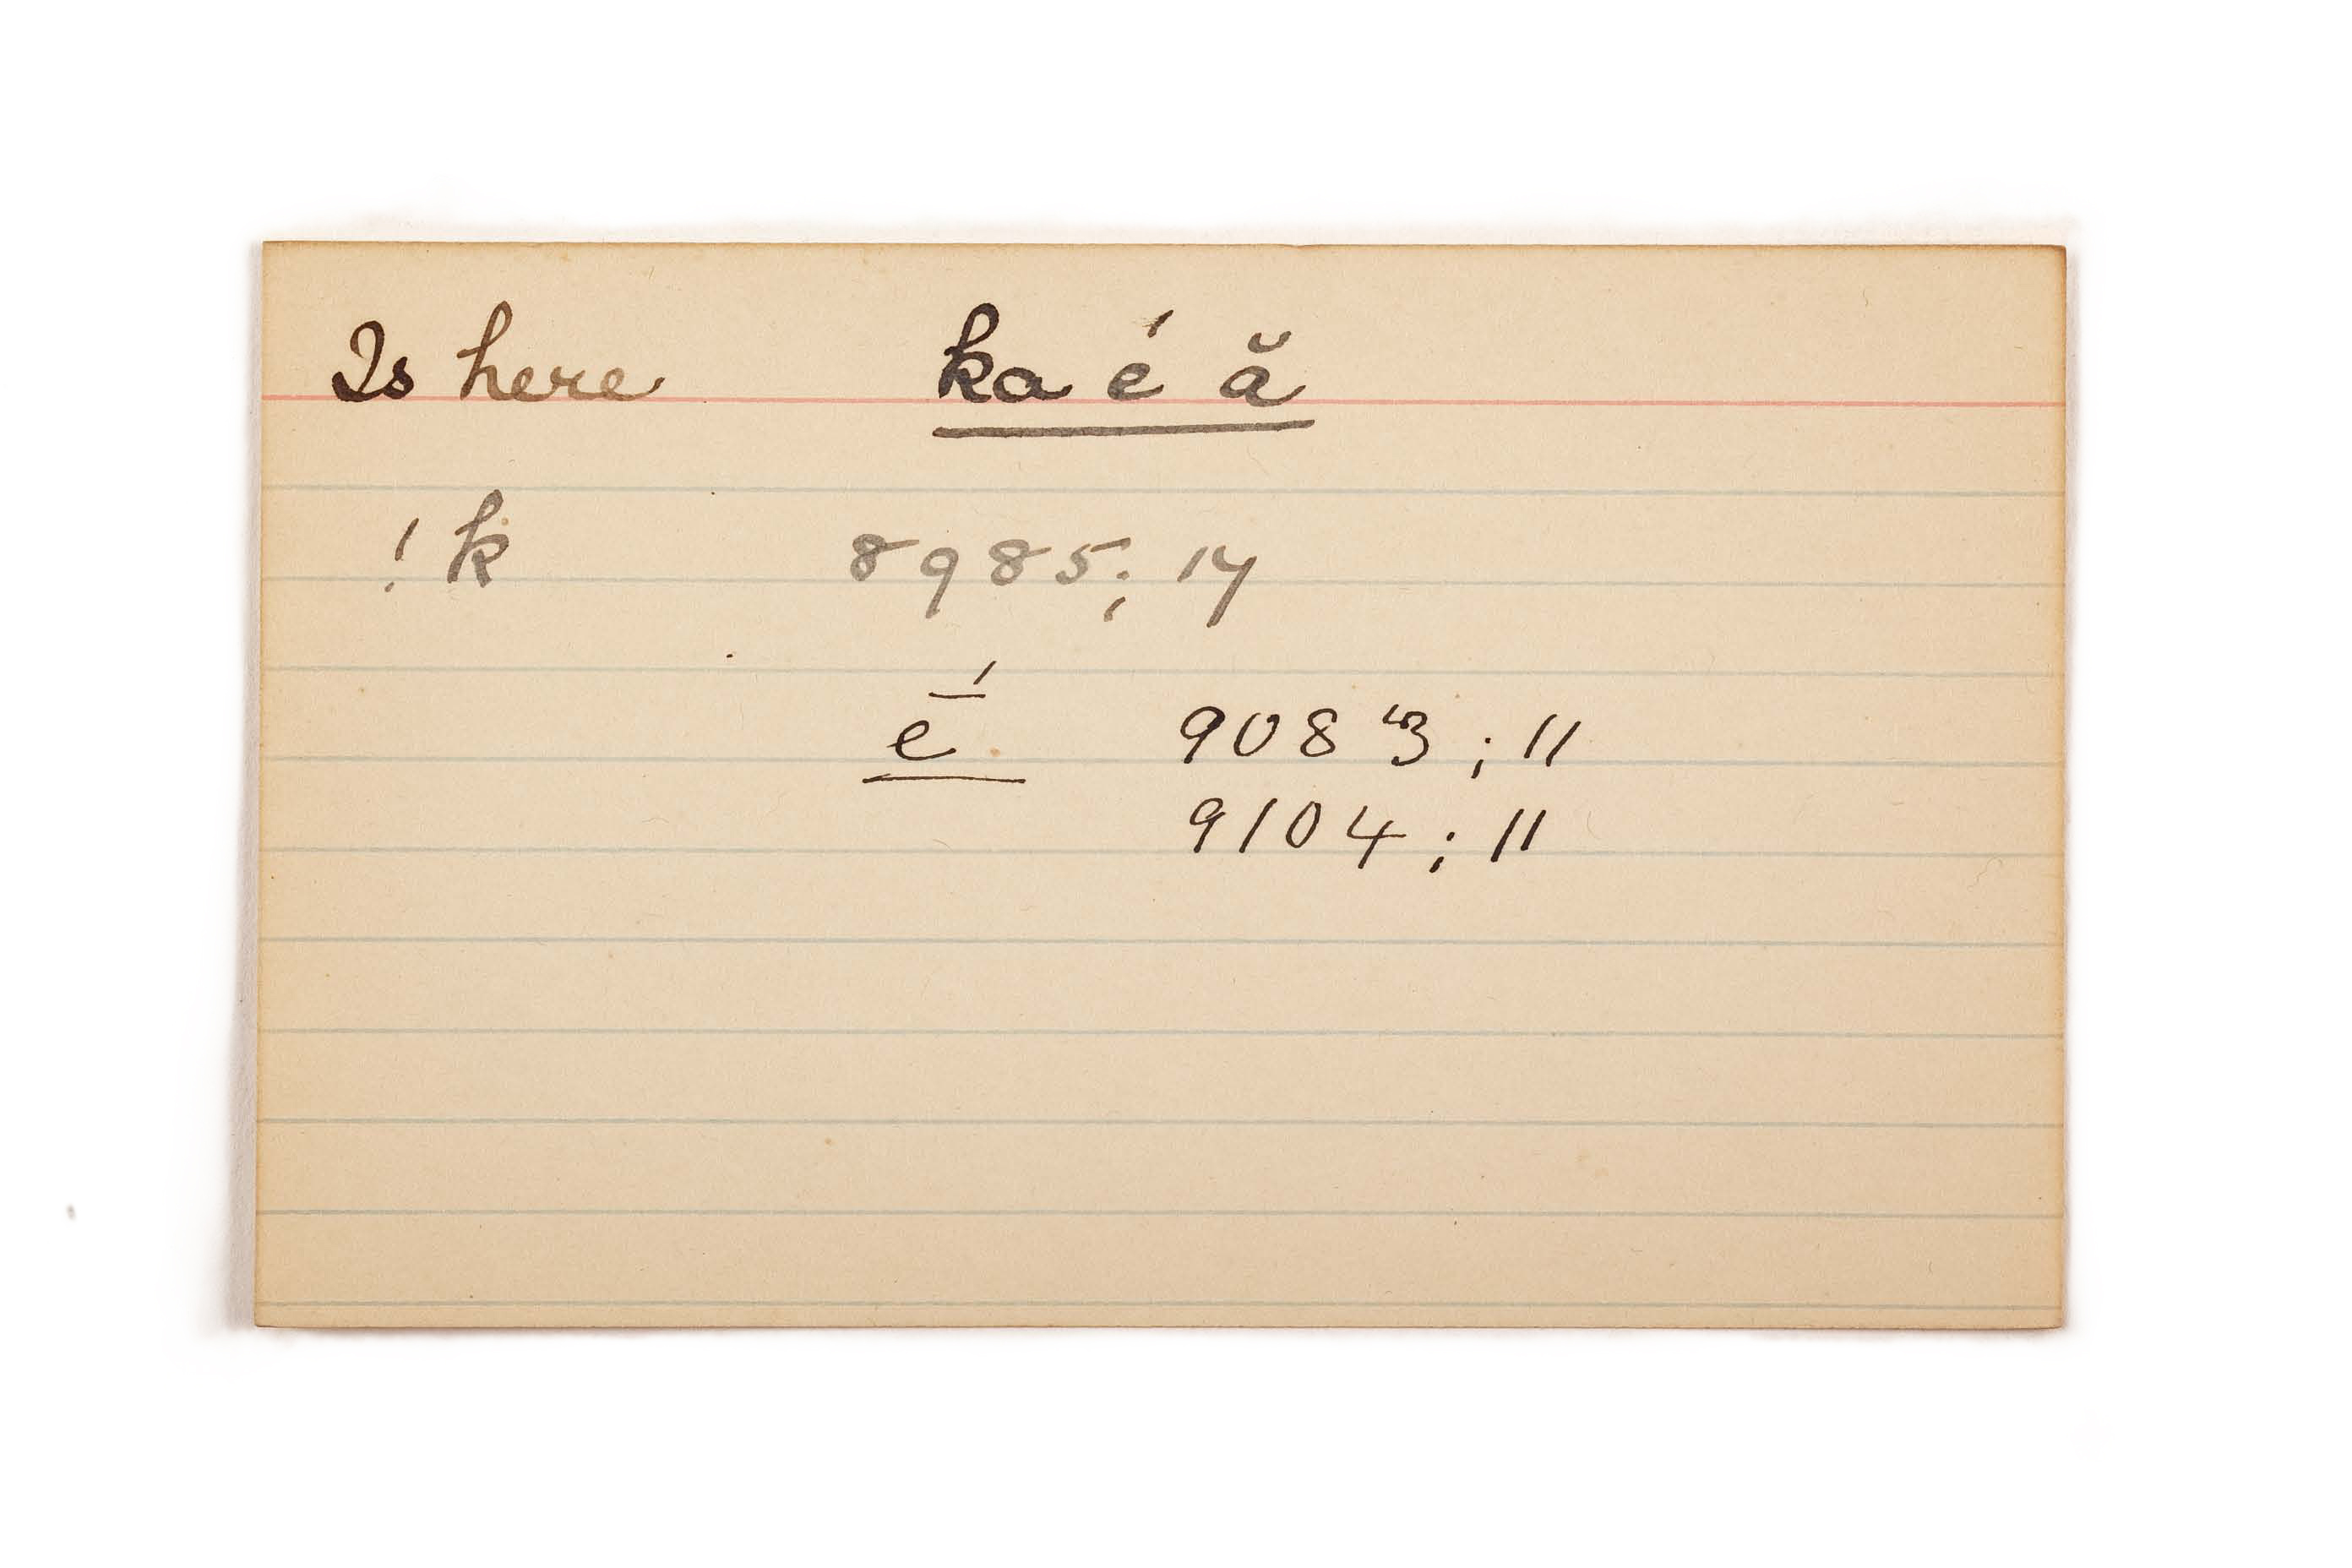 Is here ka é ă
! k 8985; 14
ḗ 9083; 11
9104; 11